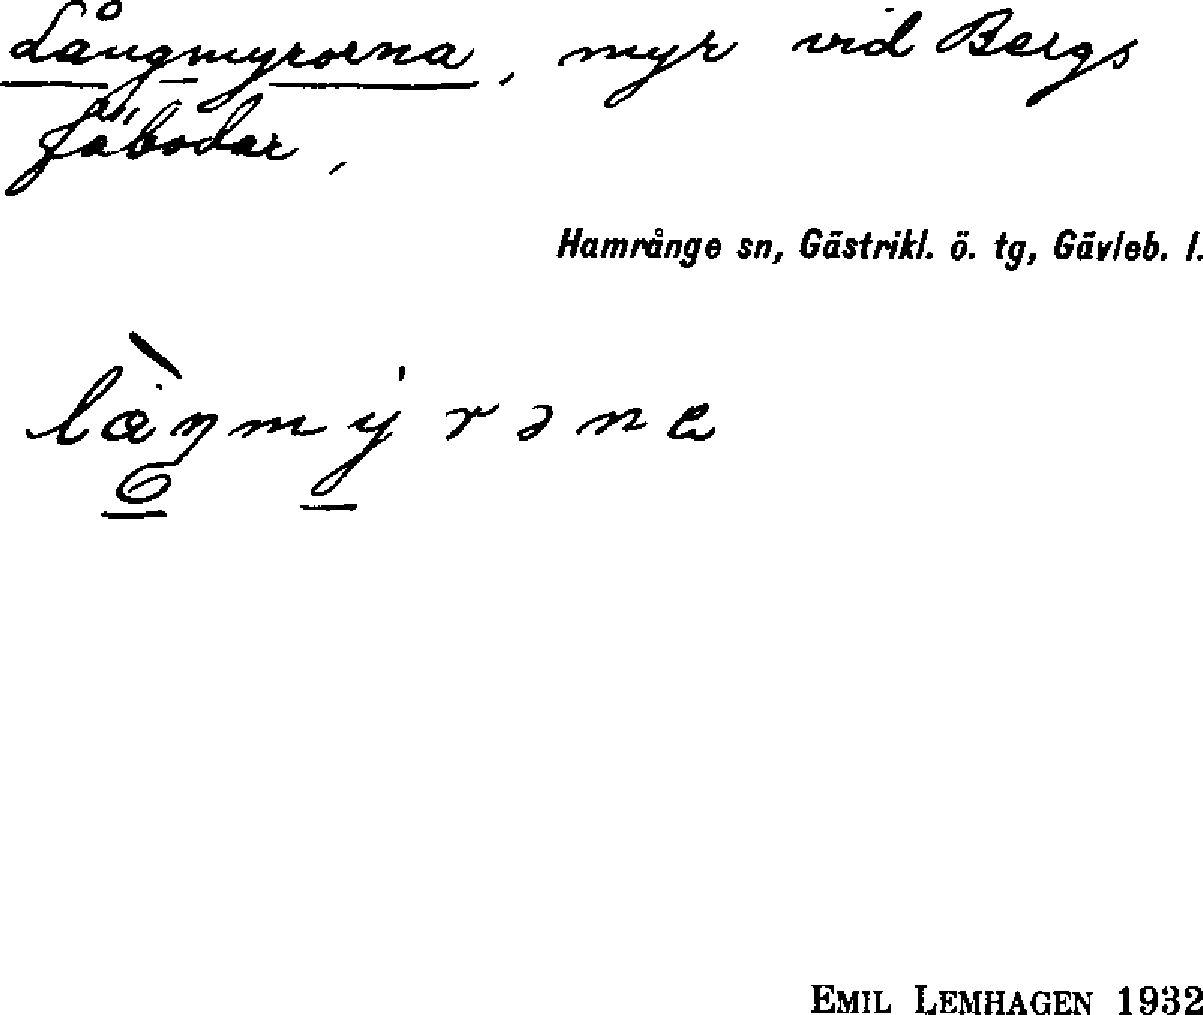 Långmyrorna, myr vid Bergs
fäbodar,
Hamrånge sn, Gästrikl. ö. tg, Gävleb. l.
EMIL LEMHAGEN 1932